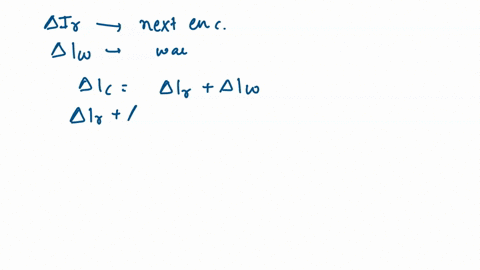 ΔIr → next enc.
ΔIw → wac
ΔIc = ΔIr + ΔIw
ΔIr + /